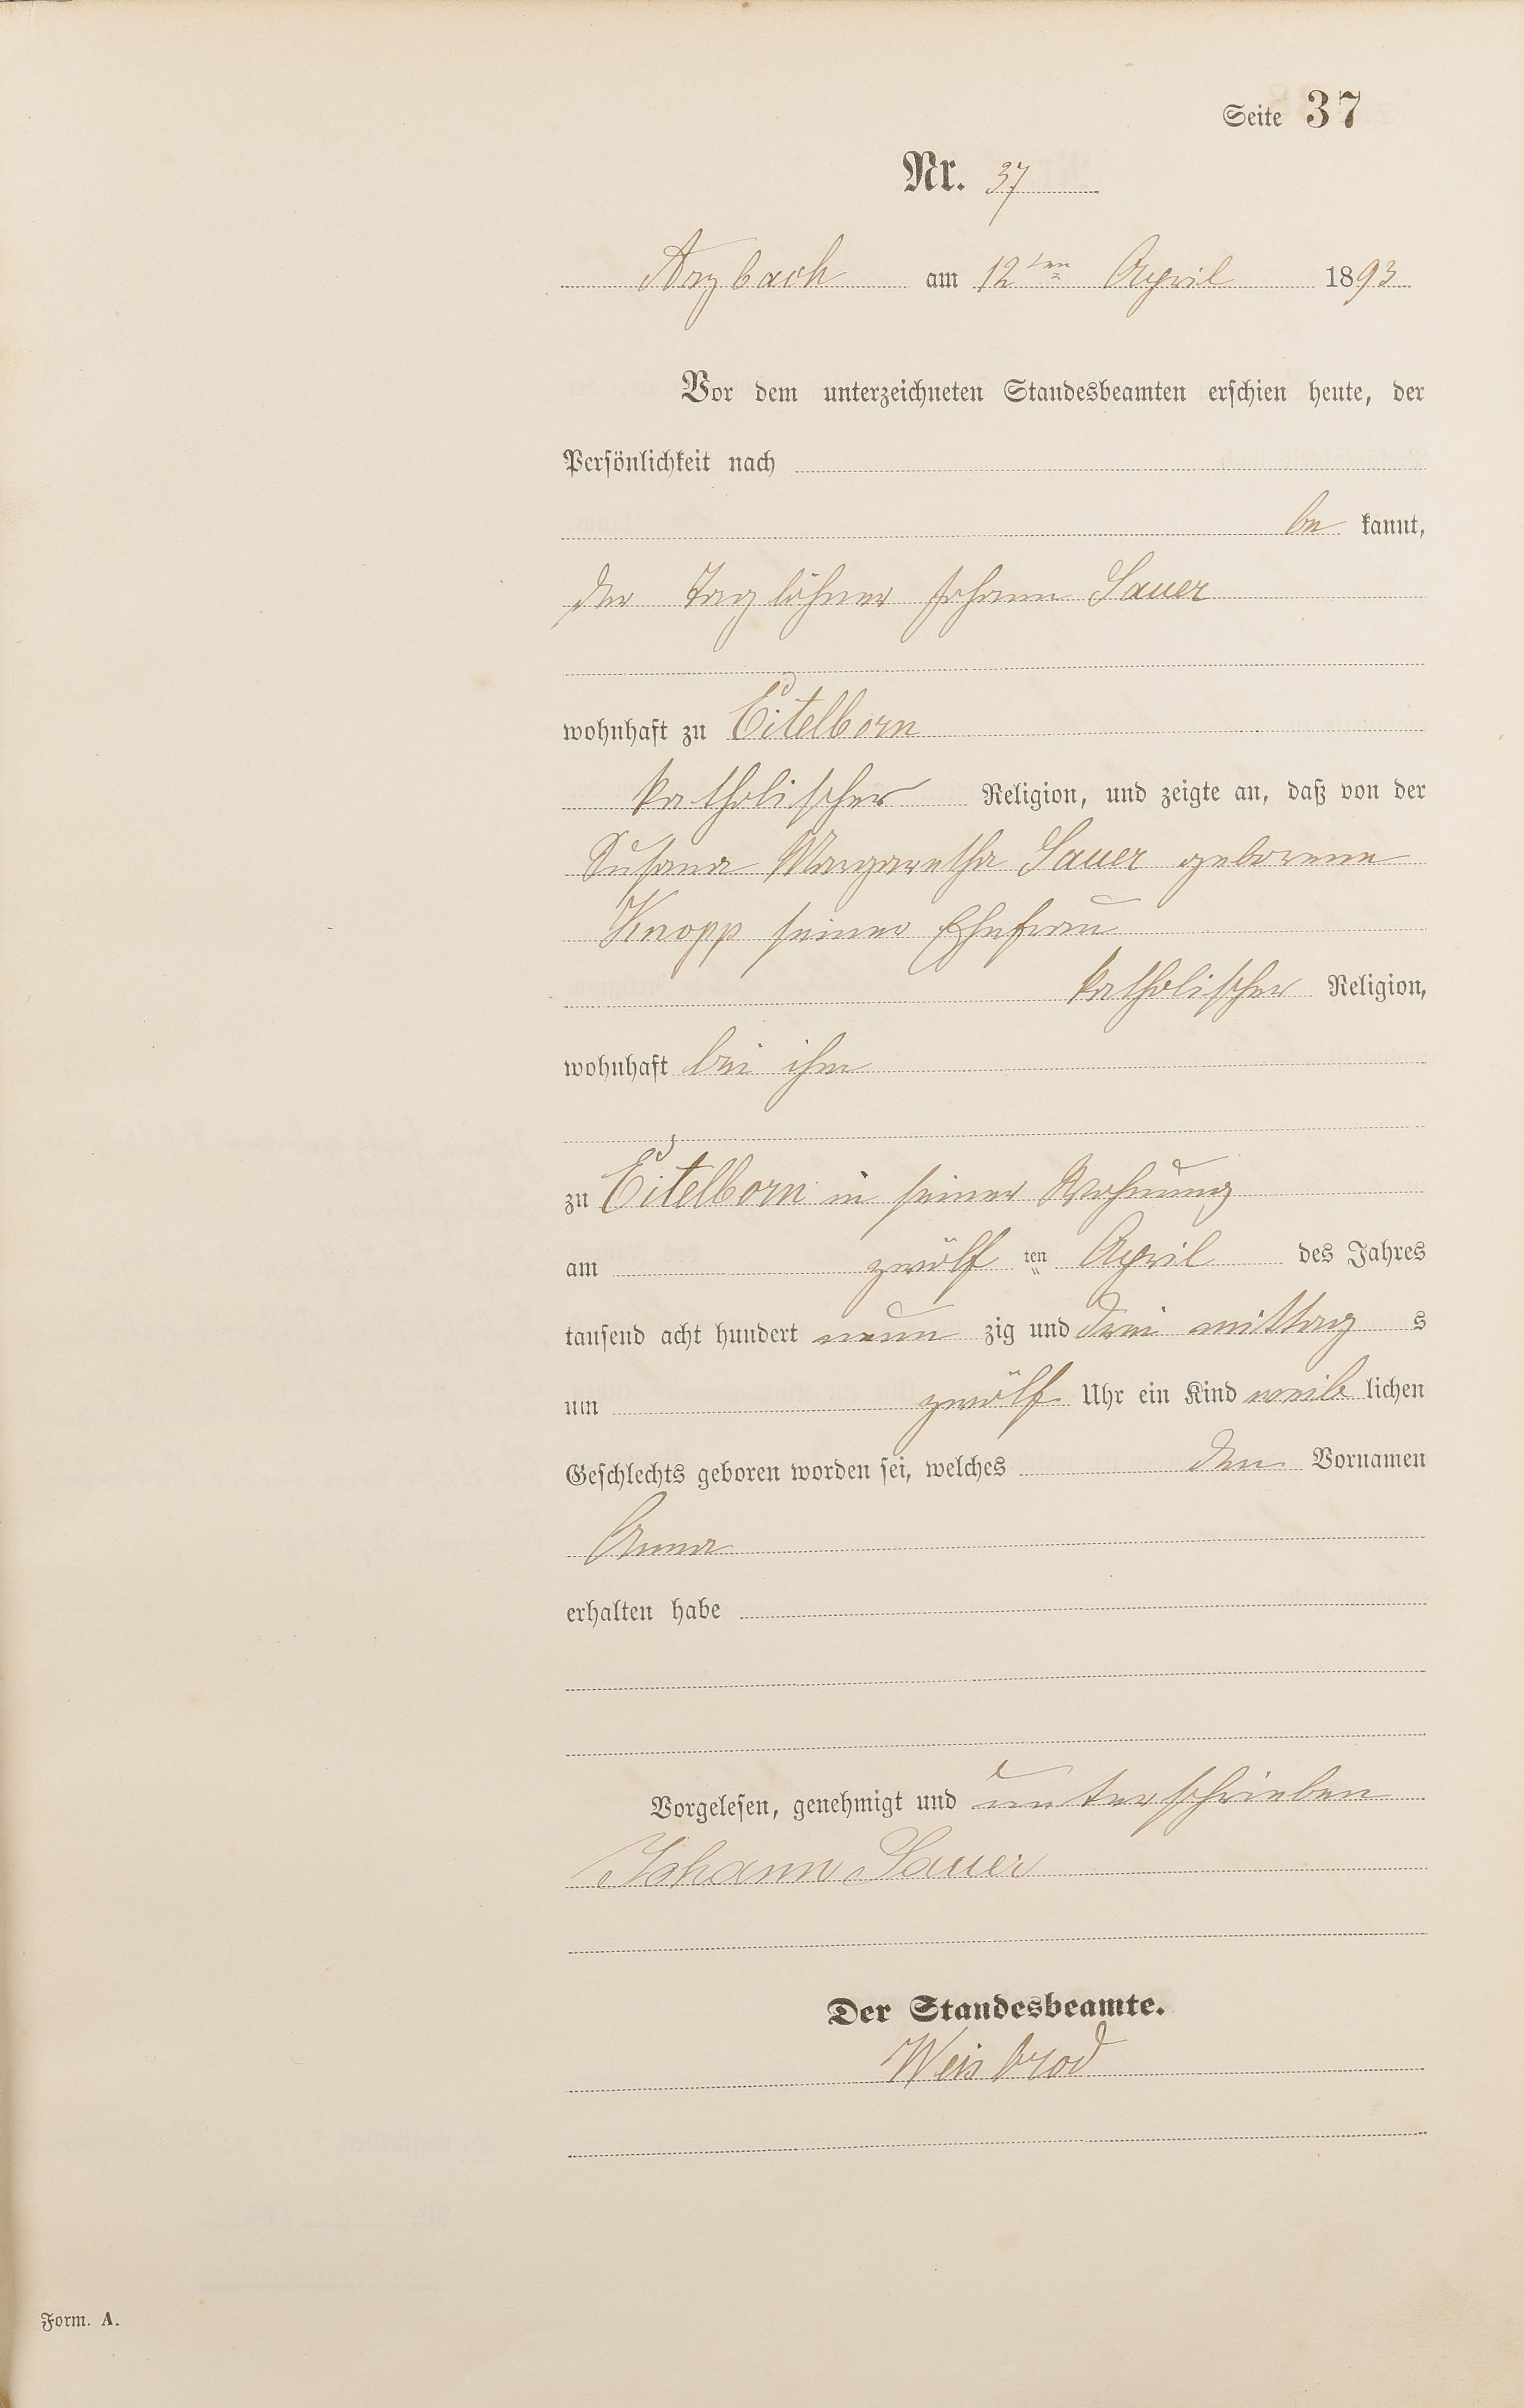 Seite 37
Nr. 37
Arzbach am 12ten April 1893
Vor dem unterzeichneten Standesbeamten erschien heute, der
Persönlichkeit nach
be kannt,
der Taglöhner Johann Sauer
wohnhaft zu Eitelborn
katholischer Religion, und zeigte an, daß von der
Susana Margaretha Sauer geborene
Knopp seiner Ehefrau
katholischer Religion,
wohnhaft bei ihm
zu Eitelborn in seiner Wohnung
am zwölf ten April des Jahres
tausend acht hundert neun zig und drei mittag s
um zwölf Uhr ein Kind weib lichen
Geschlechts geboren worden sei, welches den Vornamen
Anna
erhalten habe
Vorgelesen, genehmigt und unterschrieben
Johann Sauer
Der Standesbeamte.
Weisbrod
Form. A.